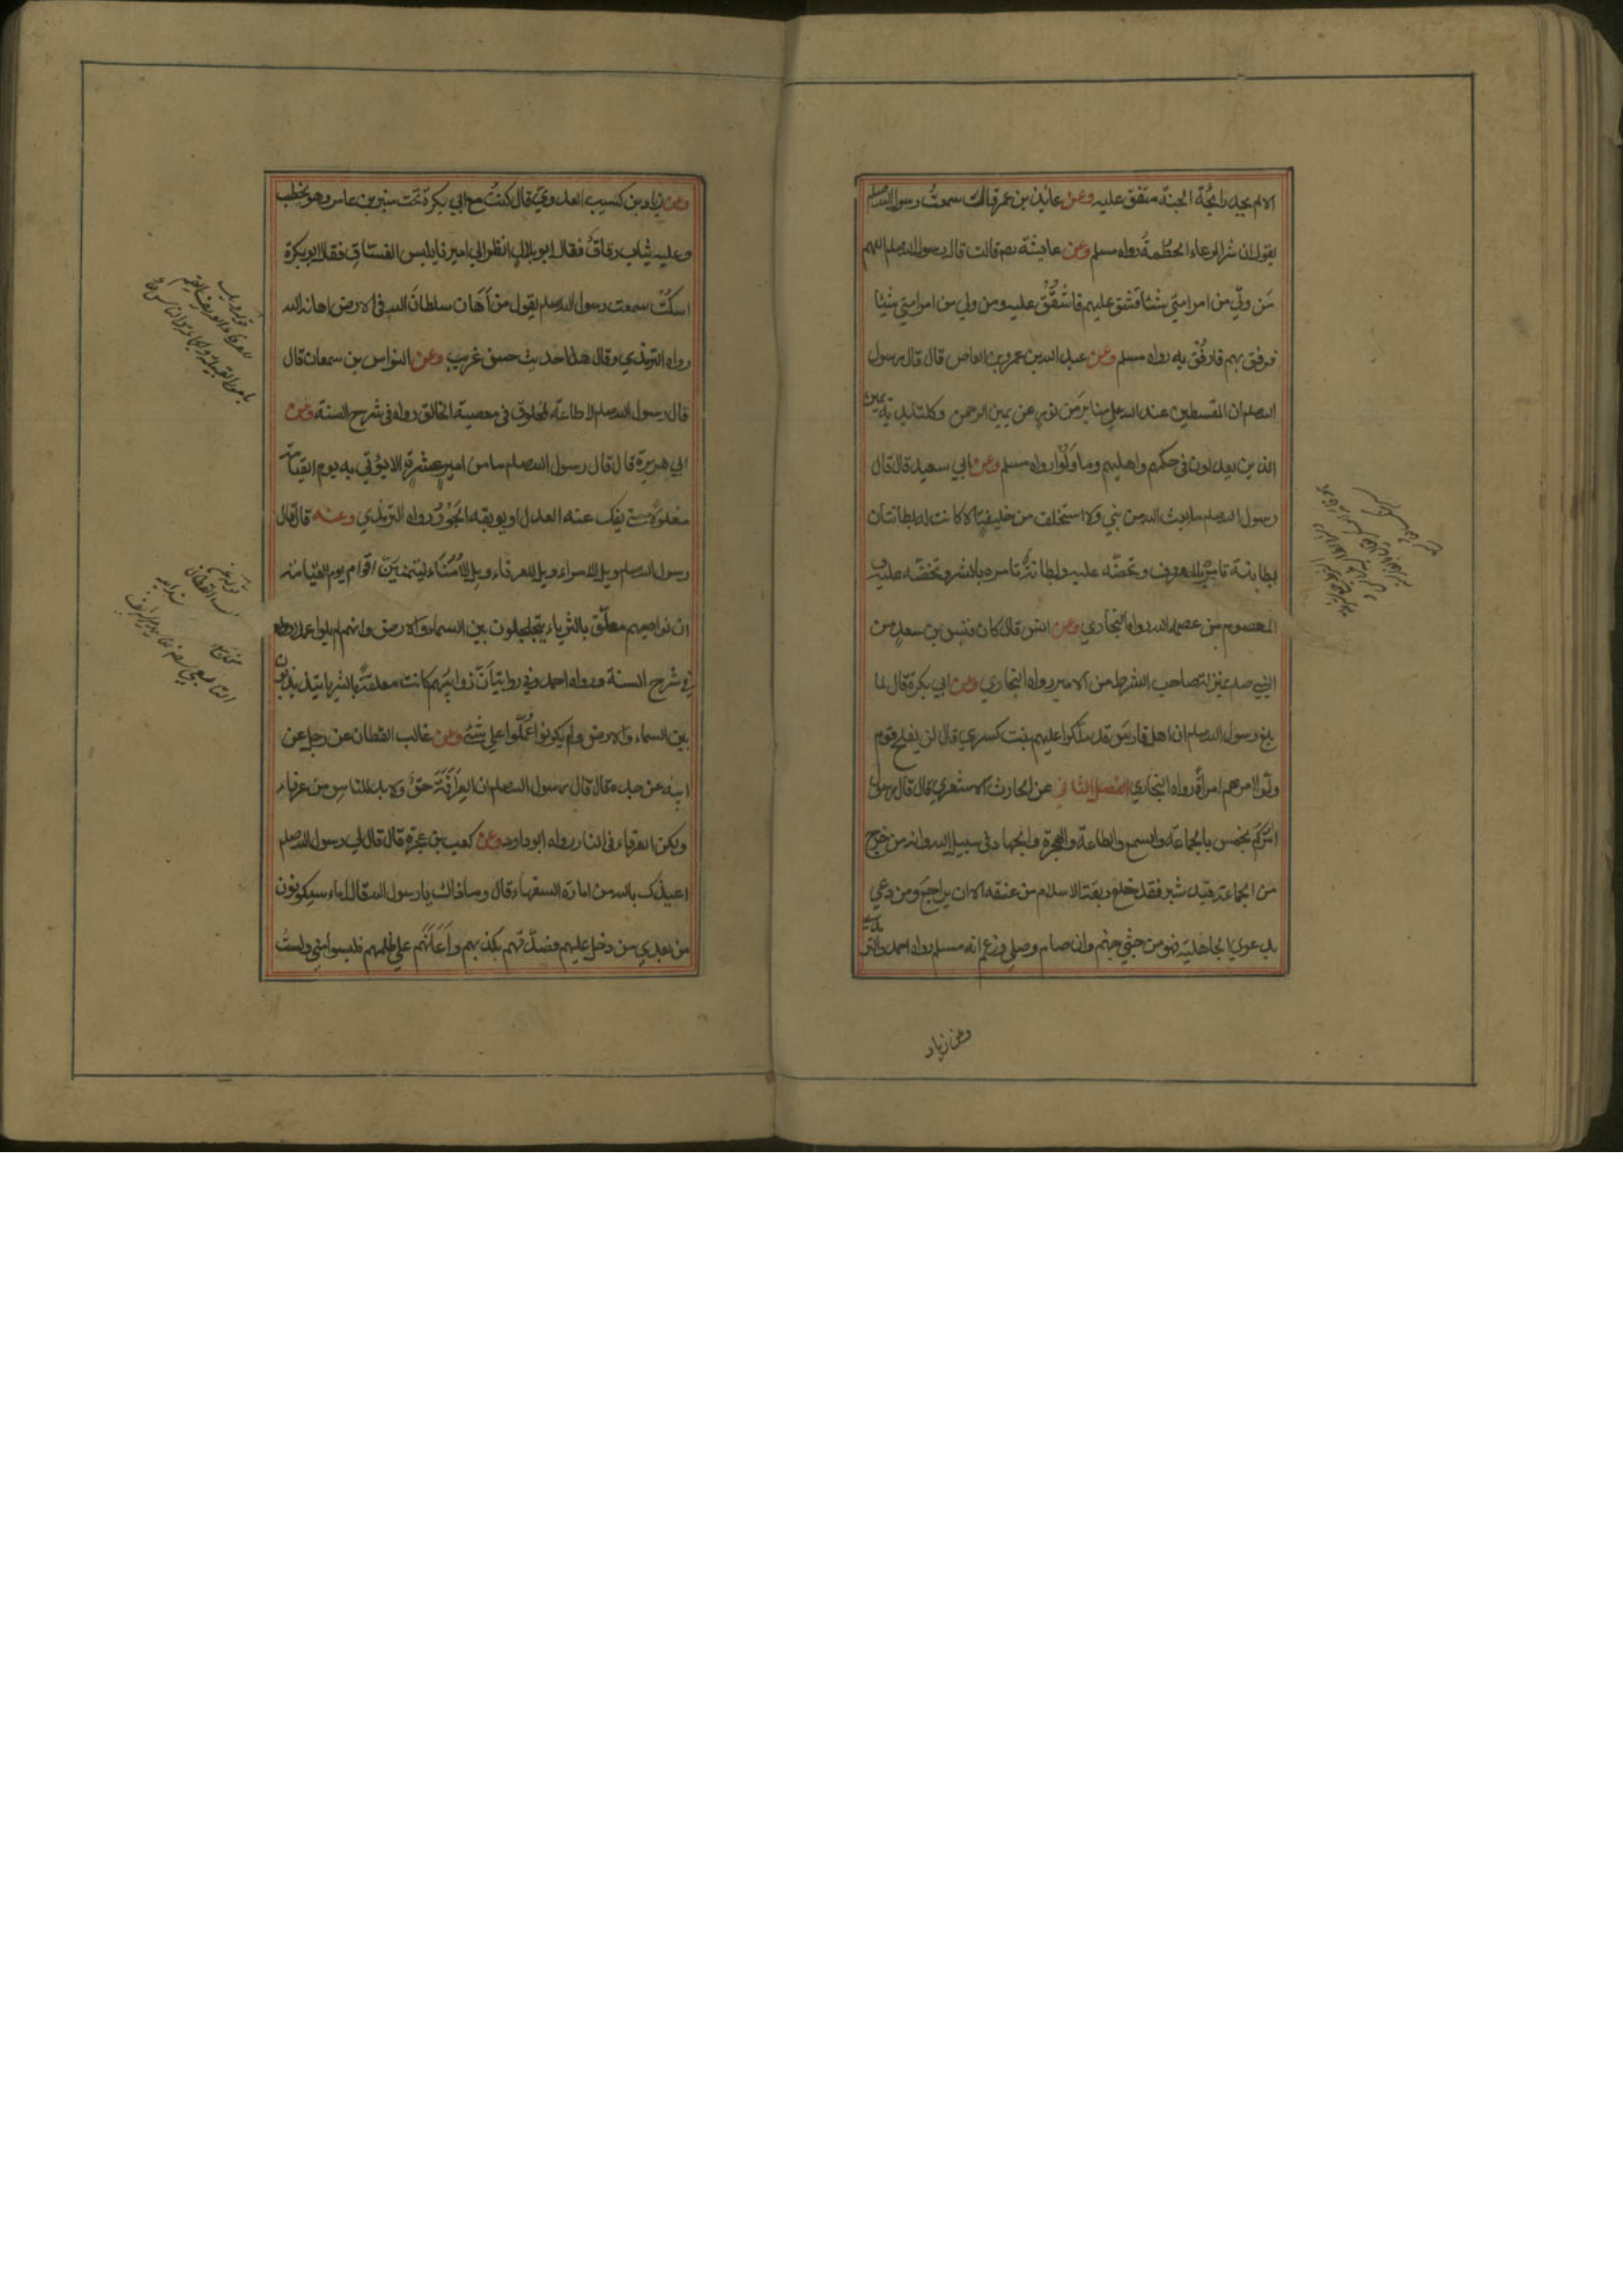 الا لم يجد رائحة الجنة متفق عليه وعن عائذ بن عمرو قال سمعت رسول الله صلعم
يقول ان شر الرعاء الحطمة رواه مسلم وعن عايشة رضـ قالت قال رسول الله صلعم اللهم
من ولي من امر امتي شيئا فشق عليهم فاشقق عليه ومن ولي من امر امتي شيئا
فرفق بهم فارفق به رواه مسلم وعن عبد الله بن عمرو بن العاص قال قال رسول
الله صلعم ان المقسطين عند الله علي منابر من نور عن يمين الرحمن وكلتا يديه يمين
الذين يعدلون في حكمهم واهليهم وما ولوا رواه مسلم وعن ابي سعيد قال قال
رسول الله صلعم ما بعث الله من نبي ولا استخلف من خليفة الا كانت له بطانتان
بطانة تامره بالمعروف وتحضه عليه وبطانة تامره بالشر وتحضه عليه و
المعصوم من عصمه الله رواه البخاري وعن انس قال كان قيس بن سعد من
النبي صلعم بمنزلة صاحب الشرط من الامير رواه البخاري وعن ابي بكرة قال لما
بلغ رسول الله صلعم ان اهل فارس قد ملكوا عليهم بنت كسري قال لن يفلح قوم
ولوا امرهم امرأة رواه البخاري الفصل الثاني عن الحارث الاشعري قال قال رسول
امركم بخمس بالجماعة والسمع والطاعة والهجرة والجهاد في سبيل الله وانه من خرج
من الجماعة قيد شبر فقد خلع ربقة الاسلام من عنقه الا ان يراجع ومن دعي
بدعوي الجاهلية فهو من جثي جهنم وان صام وصلي وزعم انه مسلم رواه احمد والترمذي
وعن زياد
وعن زياد بن كسيب العدوي قال كنت مع ابي بكرة تحت منبر بن عامر وهو يخطب
وعليه ثياب رقاق فقال ابو بلال انظر الي اميرنا يلبس الفساق فقال ابو بكرة
اسكت سمعت رسول الله صلعم يقول من اهان سلطان الله في الارض اهانه الله
رواه الترمذي وقال هذا حديث حسن غريب وعن النواس بن سمعان قال
قال رسول الله صلعم لا طاعة لمخلوق في معصية الخالق رواه في شرح السنة وعن
ابي هريرة قال قال رسول الله صلعم ما من امير عشرة الا يؤتي به يوم القيامة
مغلولا حتي يفك عنه العدل او يوبقه الجور رواه الترمذي وعنه قال قال
رسول الله صلعم ويل للامراء ويل للعرفاء ويل للامناء ليتمنين اقوام يوم القيامة
ان نواصيهم معلق بالثرياء يتجلجلون بين السماء والارض وانهم لم يلوا عملا رواه
في شرح السنة ورواه احمد وفي رواية ان ذوائبهم كانت معلقة بالثريا يتذبذبون
بين السماء والارض ولم يكونوا عملوا علي شئ وعن غالب القطان عن رجل عن
ابيه عن جده قال قال رسول الله صلعم ان العرافة حق ولا بد للناس من عرفاء
ولكن العرفاء في النار رواه ابو داود وعن كعب بن عجرة قال قال لي رسول الله صلعم
اعيذك بالله من امارة السفهاء قال وما ذاك يا رسول الله قال امراء سيكونون
من بعدي من دخل عليهم فصدقهم بكذبهم واعانهم علي ظلمهم فليسوا مني ولست